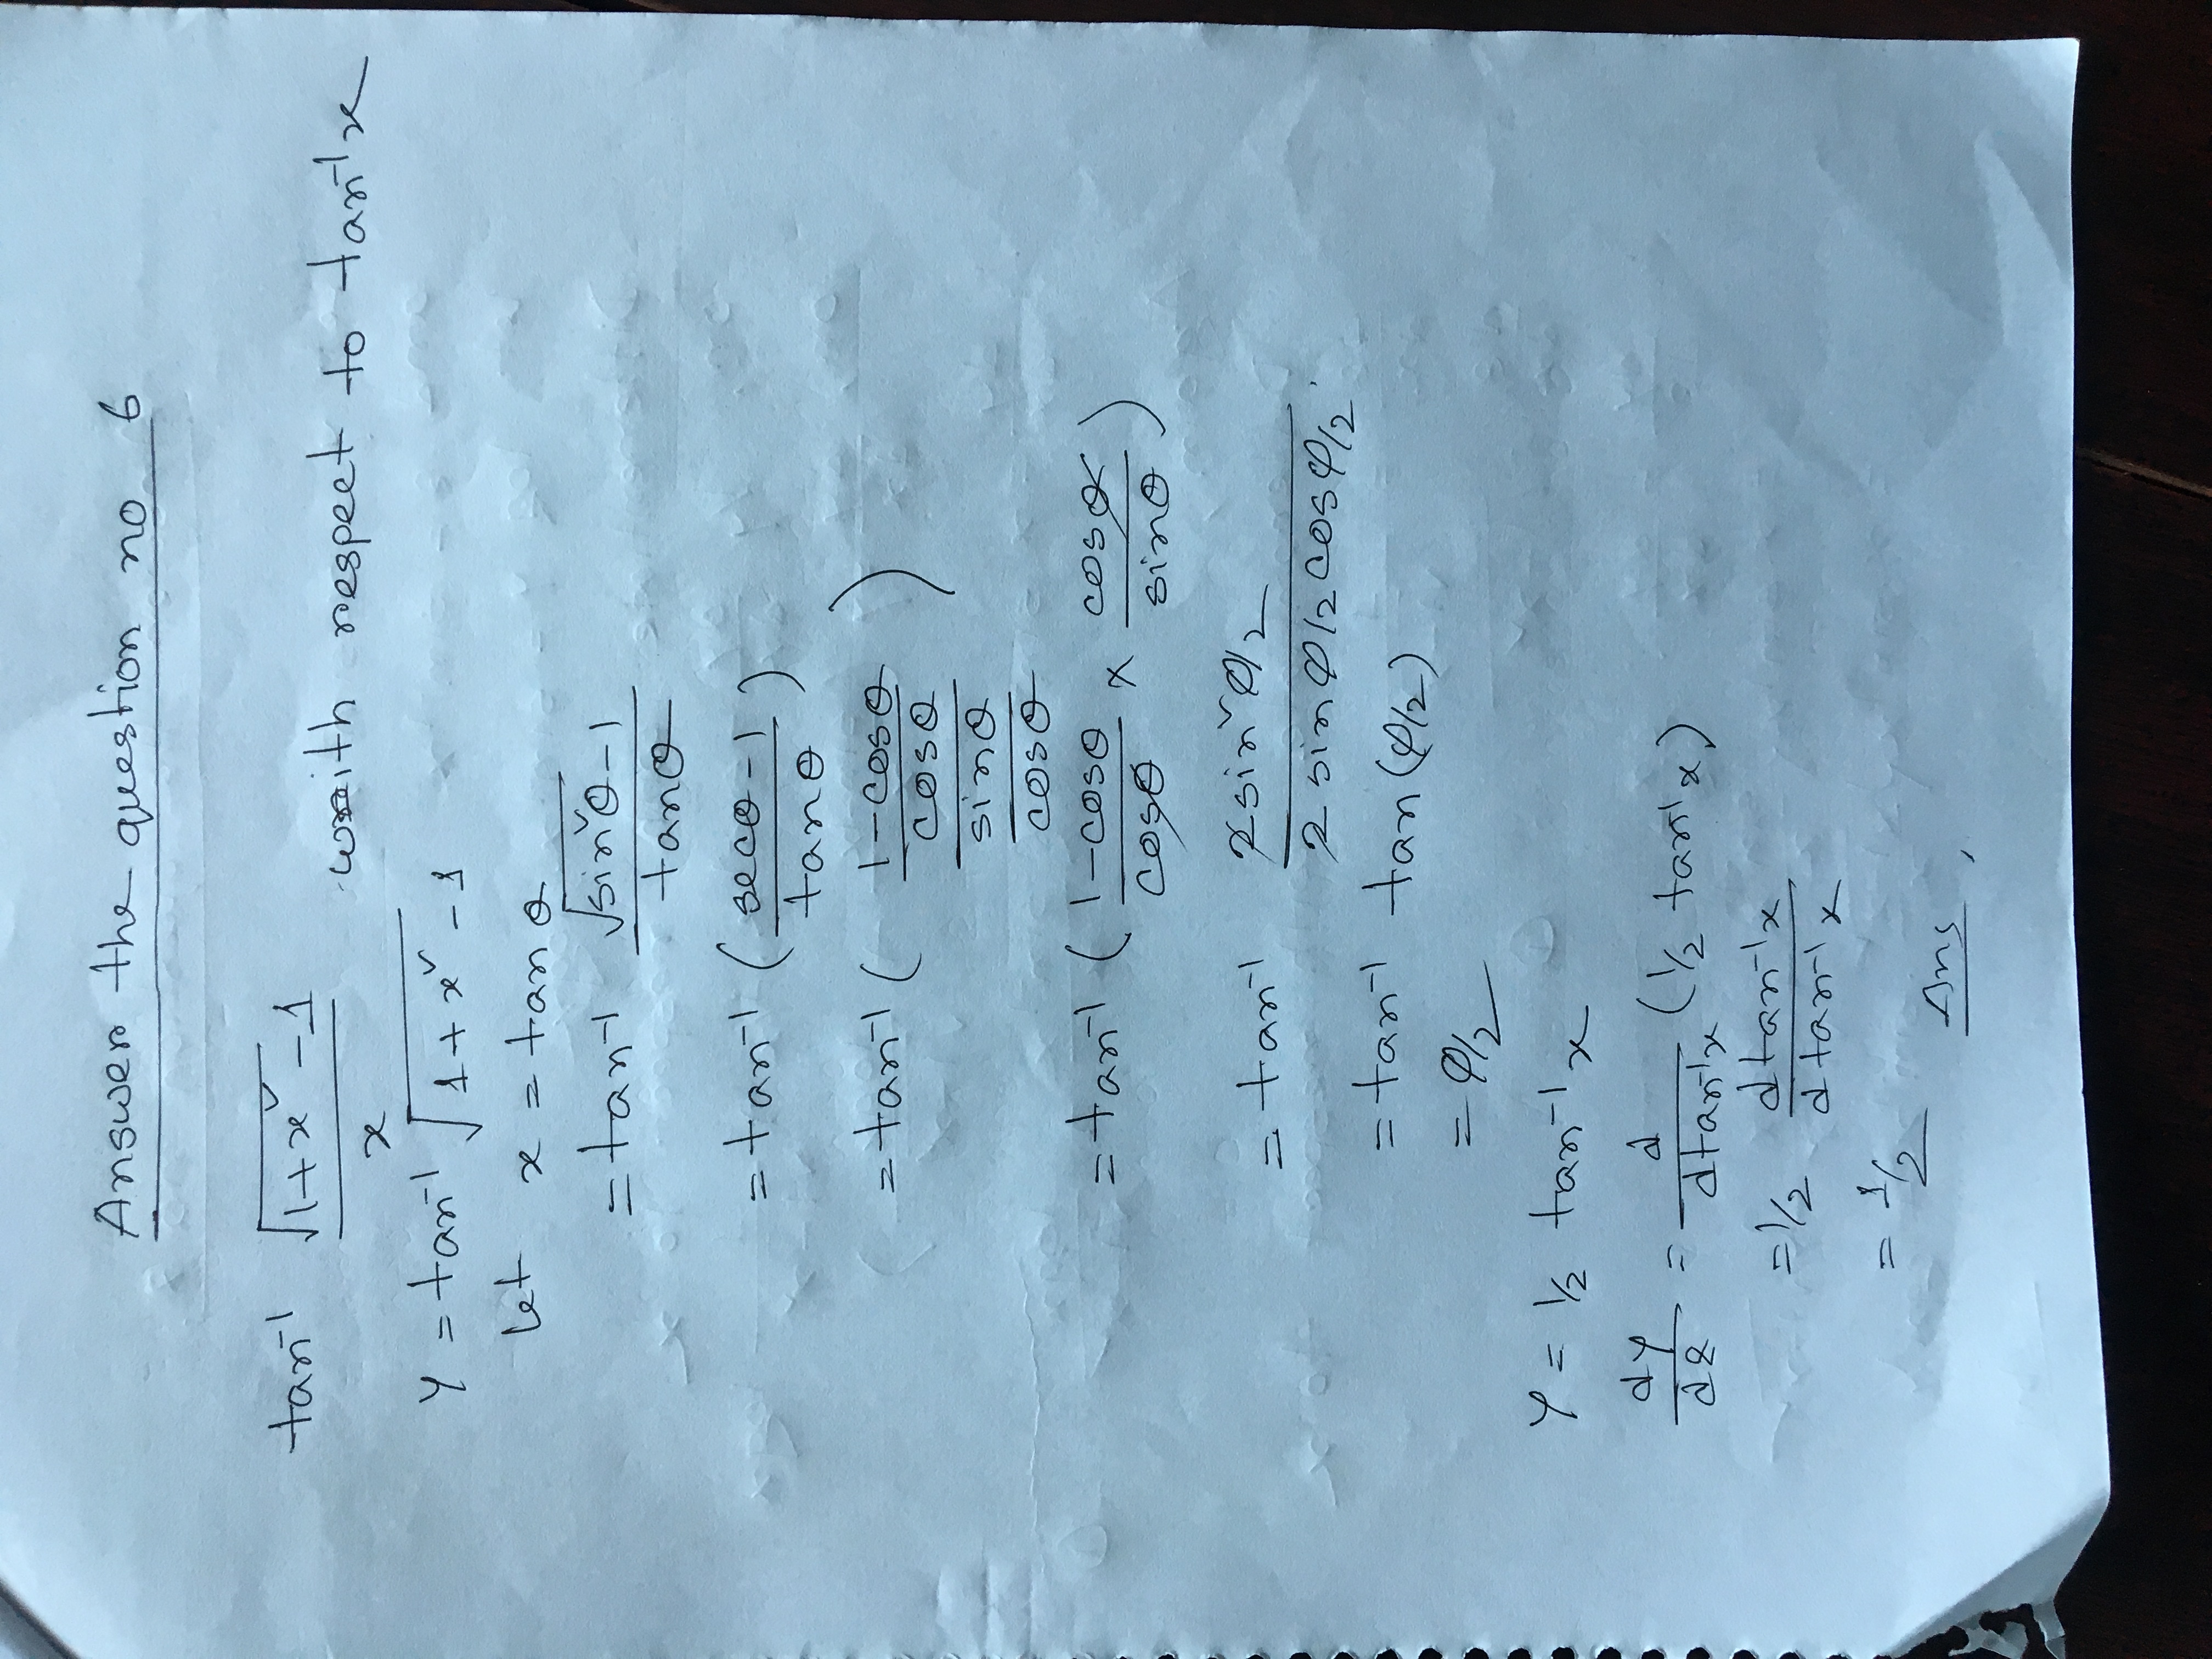 Answer the question no 6
tan⁻¹ (√(1+x²) -1)/x with respect to tan⁻¹x
Y = tan⁻¹ √(1+x² -1)
Let x = tanθ
= tan⁻¹ (√(sin²θ) -1)/tanθ
= tan⁻¹ ((secθ -1)/tanθ)
= tan⁻¹ (((1-cosθ)/cosθ)/(sinθ/cosθ))
= tan⁻¹ ((1-cosθ)/cosθ × cosθ/sinθ)
= tan⁻¹ (2sin²θ/2)/(2 sinθ/2 cosθ/2)
= tan⁻¹ tan(θ/2)
= θ/2
Y = 1/2 tan⁻¹x
dy/dz = d/dtan⁻¹x (1/2 tan⁻¹x)
= 1/2 dtan⁻¹x/dtan⁻¹x
= 1/2
Ans,